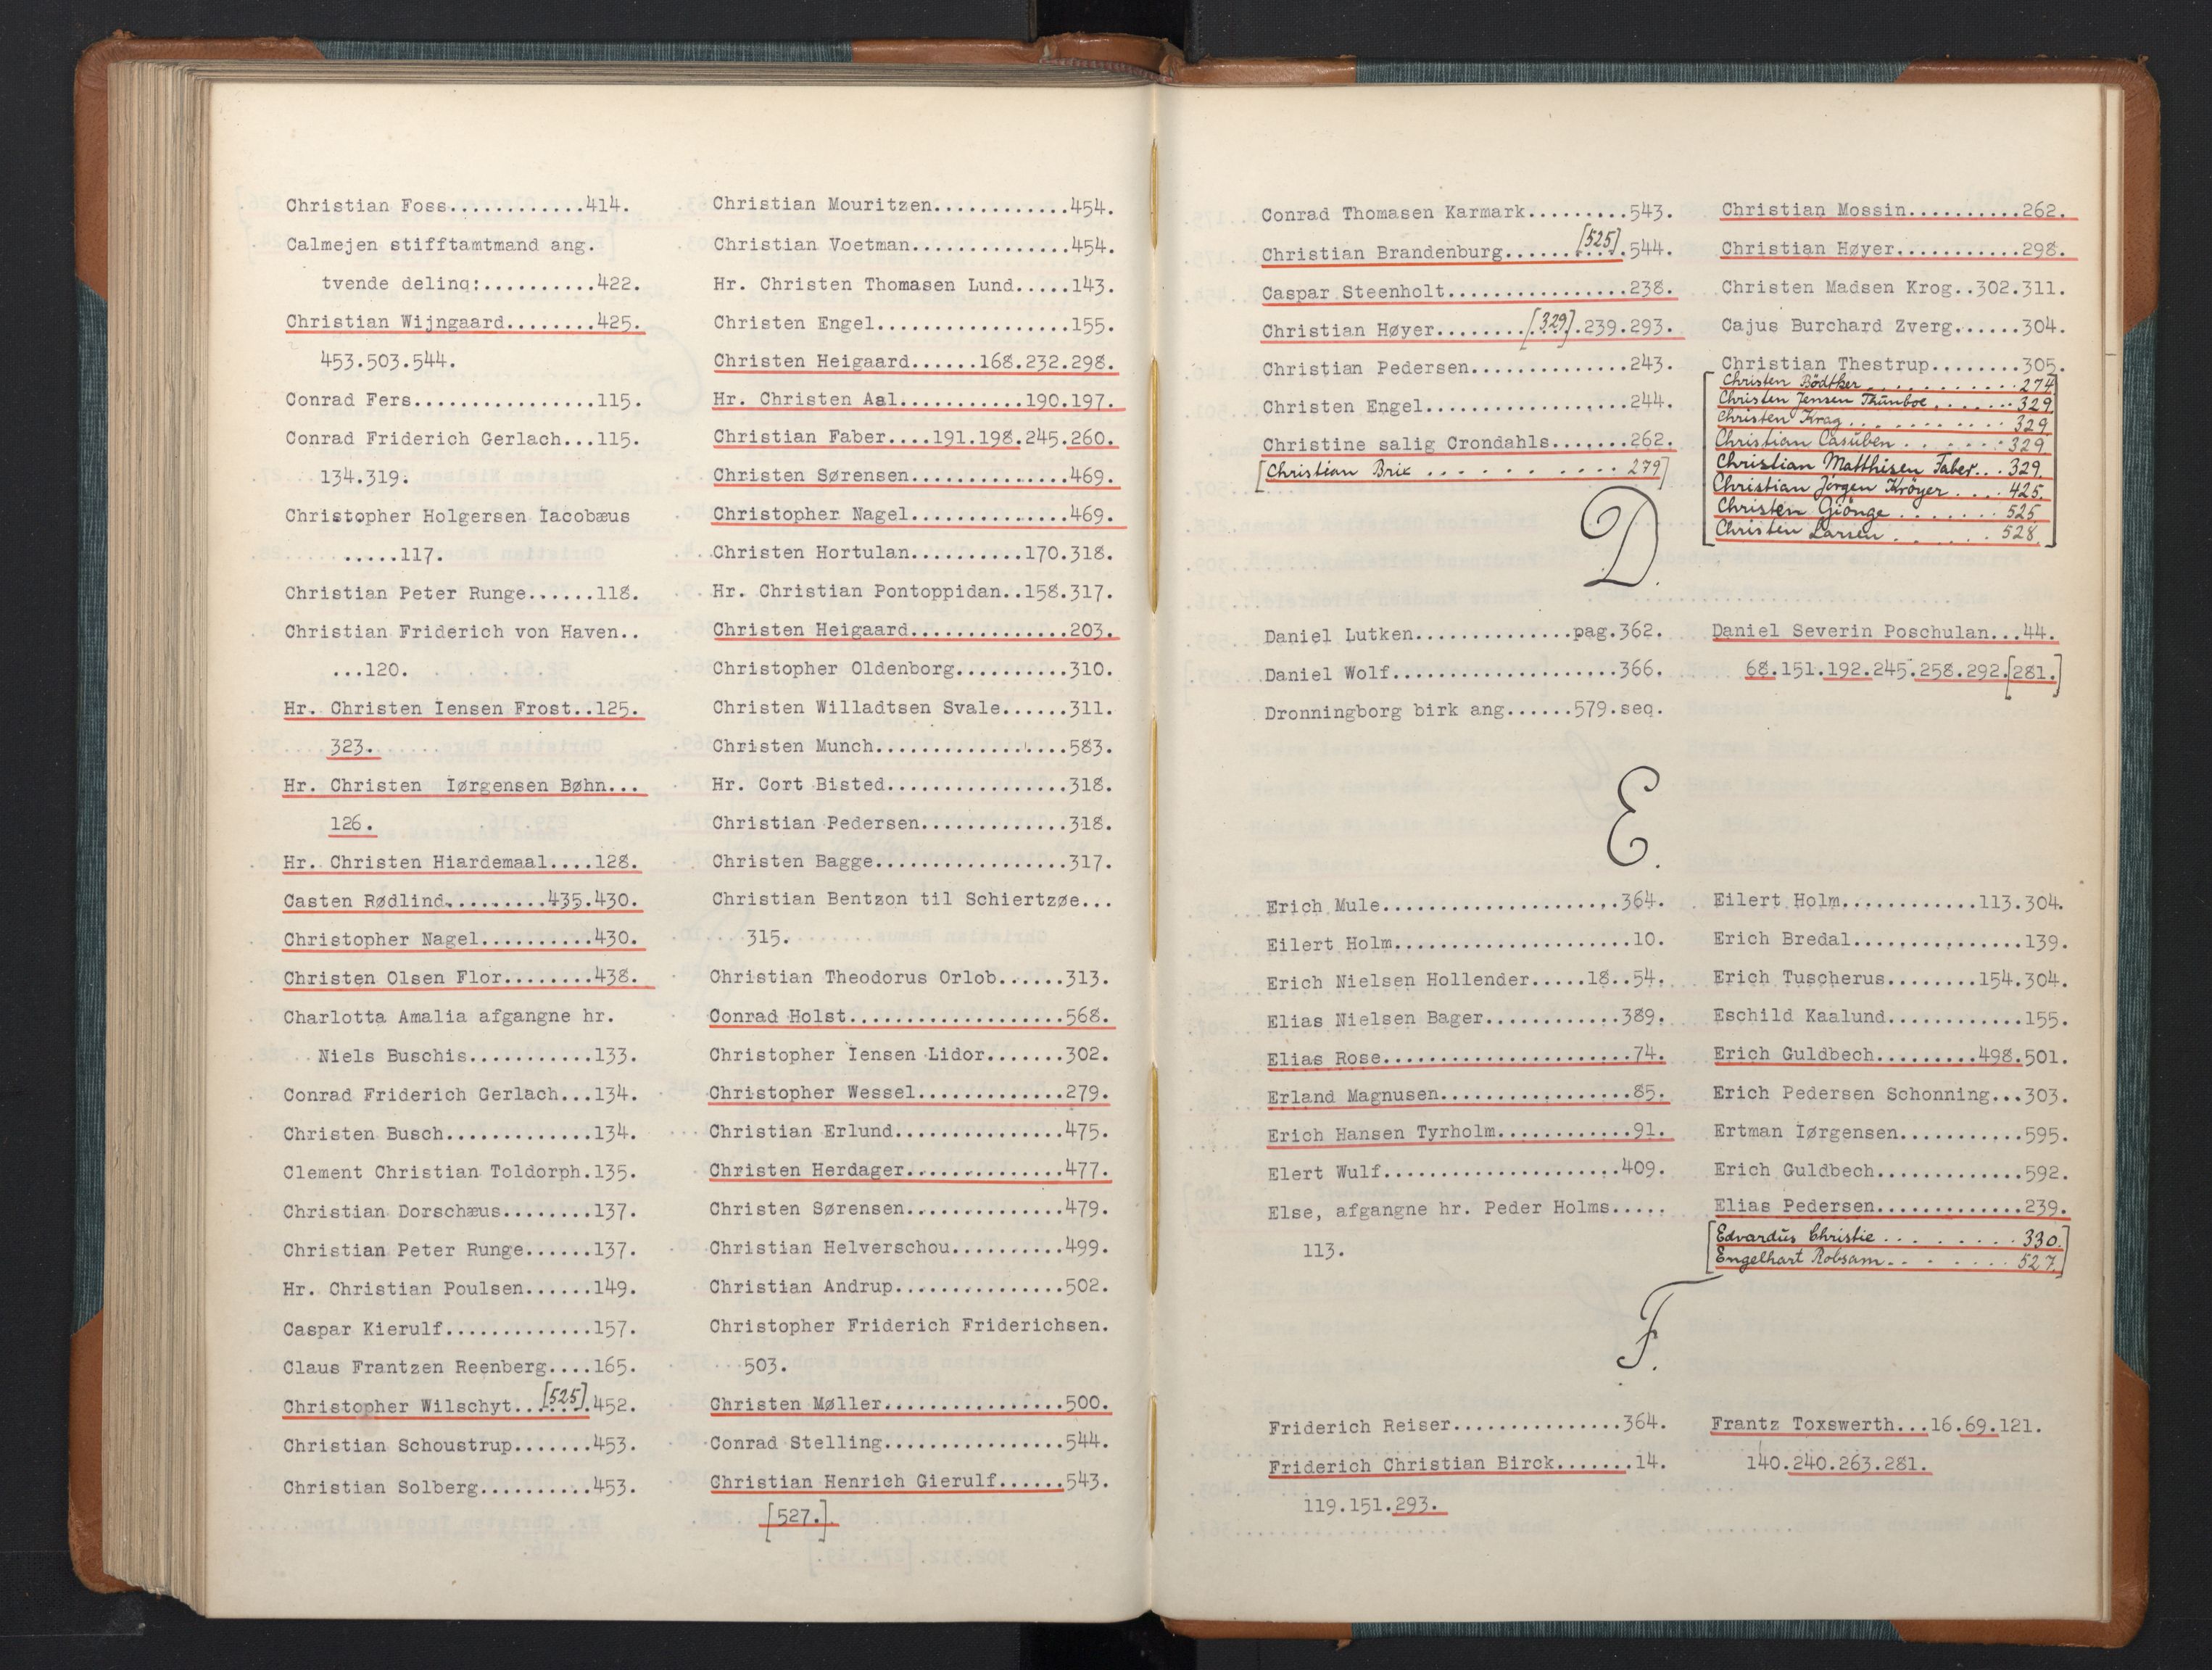 Christian Foss............414.
Calmejen stifftamtmand ang.
tvende delinq:..........422.
Christian Wijngaard........425.
453.503.544.
Conrad Fers................115.
Conrad Friderich Gerlach...115.
134.319.
Christopher Holgersen Iacobæus
.....117.
Christian Peter Runge......118.
Christian Friderich von Haven..
...120.
Hr. Christen Iensen Frost..125.
323.
Hr. Christen Iørgensen Bøhn...
126.
Hr. Christen Hiardemaal....128.
Casten Rødlind.........435.430.
Christopher Nagel..........430.
Christen Olsen Flor........438.
Charlotta Amalia afgangne hr.
Niels Buschis...........133.
Conrad Friderich Gerlach...134.
Christen Busch.............134.
Clement Christian Toldorph.135.
Christian Dorschæus........137.
Christian Peter Runge......137.
Hr. Christian Poulsen......149.
Caspar Kierulf.............157.
Claus Frantzen Reenberg....165.
Christopher Wilschyt..[525].452.
Christian Schoustrup.......453.
Christian Solberg..........453.
Christian Mouritzen............454.
Christian Voetman..............454.
Hr. Christen Thomasen Lund.....143.
Christen Engel.................155.
Christen Heigaard......168.232.298.
Hr. Christen Aal...........190.197.
Christian Faber....191.198.245.260.
Christen Sørensen..............469.
Christopher Nagel..............469.
Christen Hortulan..........170.318.
Hr. Christian Pontoppidan..158.317.
Christen Heigaard..............203.
Christopher Oldenborg..........310.
Christen Willadtsen Svale......311.
Christen Munch.................583.
Hr. Cort Bisted................318.
Christian Pedersen.............318.
Christen Bagge.................317.
Christian Bentzon til Schiertzøe...
315.
Christian Theodorus Orlob......313.
Conrad Holst...................568.
Christopher Iensen Lidor.......302.
Christopher Wessel.............279.
Christian Erlund...............475.
Christen Herdager..............477.
Christen Sørensen..............479.
Christian Helverschou..........499.
Christian Andrup...............502.
Christopher Friderich Friderichsen.
503.
Christen Møller................500.
Conrad Stelling................544.
Christian Henrich Gierulf......543.
[527.]
Conrad Thomasen Karmark.........543.
Christian Brandenburg.......[525].544.
Caspar Steenholt................238.
Christian Høyer........[329].239.293.
Christian Pedersen..............243.
Christen Engel..................244.
Christine salig Crondahls.......262.
[Christian Brix . . . . . . . . . . 279]
Christian Mossin..........262.
Christian Høyer...........298.
Christen Madsen Krog..302.311.
Cajus Burchard Zverg......304.
Christian Thestrup........305.
[Christen Bödtker . . . . . . . . . . 274
Christen Jensen Thünboe . . . . . . . 329
Christen Krag . . . . . . . . . . 329
Christian Casüben . . . . . . 329
Christian Matthisen Faber. . . 329.
Christian Jörgen Kröyer . . . . 425.
Christen Giönge . . . . . . . 525
Christen Larsen . . . . . . 528.]
D.
Daniel Lutken..............pag.362.
Daniel Wolf....................366.
Dronningborg birk ang......579.seq.
Daniel Severin Poschulan...44.
68.151.192.245.258.292.[281.]
E.
Erich Mule.....................364.
Eilert Holm.....................10.
Erich Nielsen Hollender.....18..54.
Elias Nielsen Bager............389.
Elias Rose......................74.
Erland Magnusen.................85.
Erich Hansen Tyrholm............91.
Elert Wulf.....................409.
Else, afgangne hr. Peder Holms.....
113.
Eilert Holm............113.304.
Erich Bredal...............139.
Erich Tuscherus........154.304.
Eschild Kaalund............155.
Erich Guldbech.........498.501.
Erich Pedersen Schonning...303.
Ertman Iørgensen...........595.
Erich Guldbech.............592.
Elias Pedersen.............239.
[Edvardüs Christie . . . . . . . . 330.
Engelhart Robsam . . . . . . . 527.]
F.
Friderich Reiser...............364.
Friderich Christian Birck.......14.
119.151.293.
Frantz Toxswerth...16.69.121.
140.240.263.281.